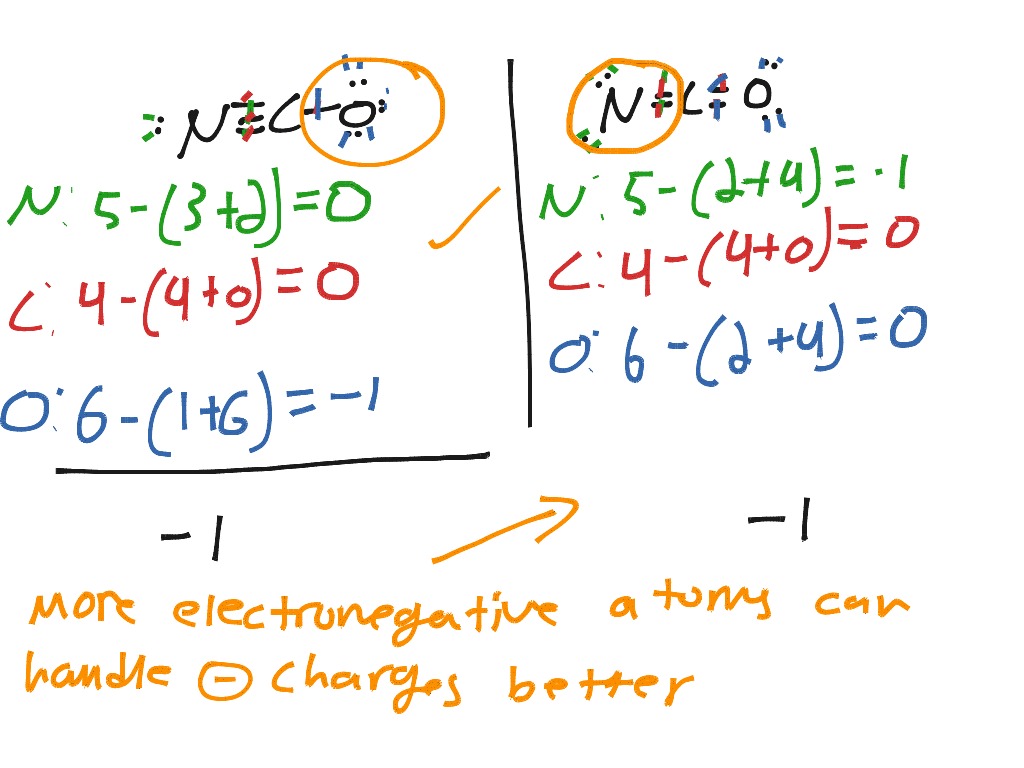 :N≡C-O
N≡C=O
N: 5-(3+2)=0
C: 4-(4+0)=0
O: 6-(1+6)=-1
-1
N: 5-(2+4)=-1
C: 4-(4+0)=0
O: 6-(2+4)=0
-1
More electronegative atoms can
handle ⊖ charges better